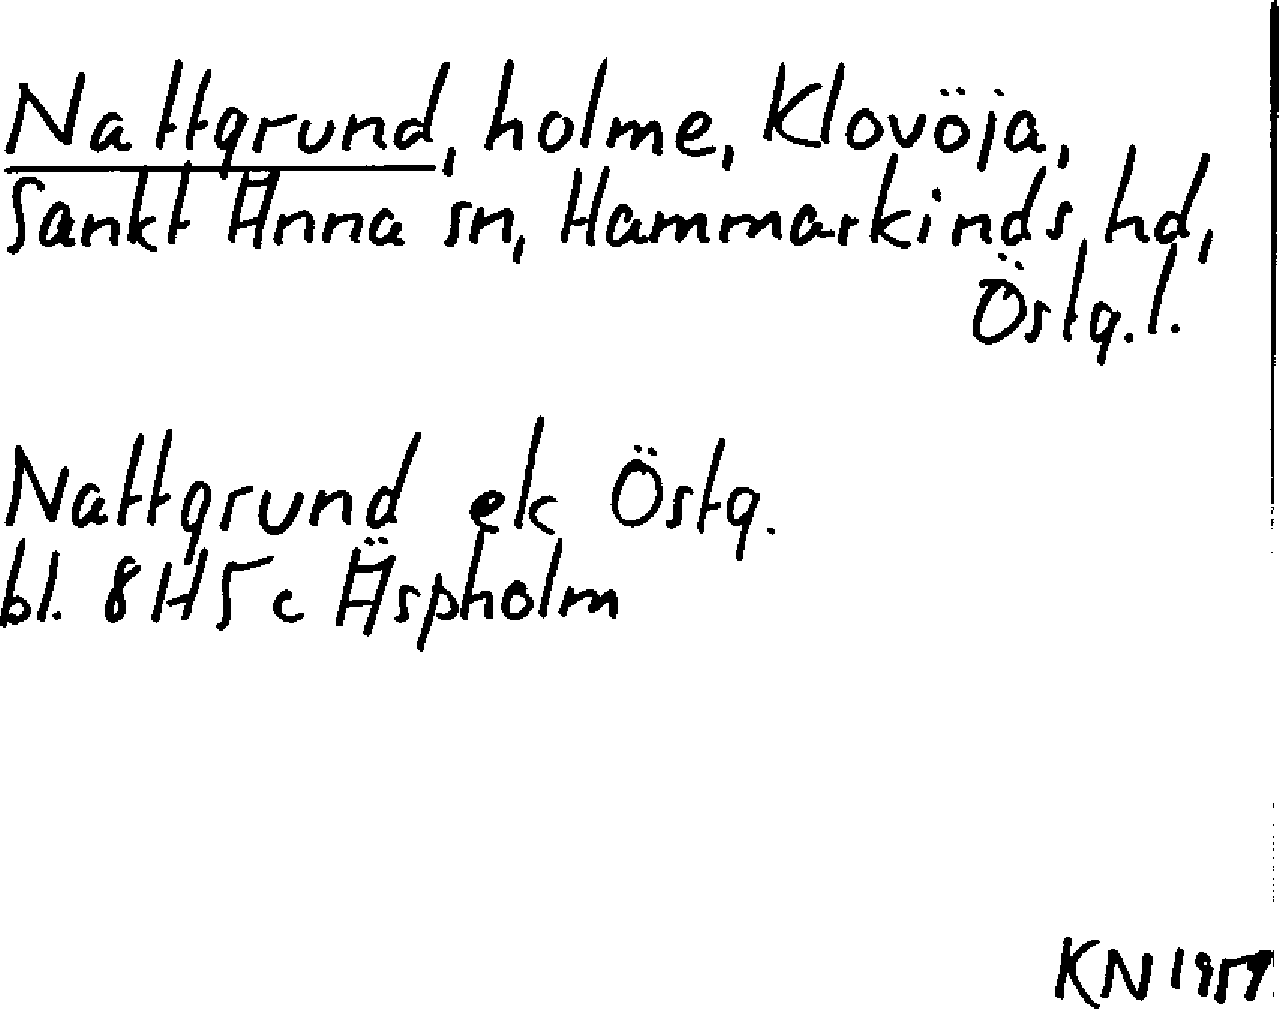 Nattgrund, holme, Klovöja,
Sankt Anna sn, Hammarkinds hd,
Östg.l.
Nattgrund ek Östg.
bl. 8H5c Äspholm
KN 1959